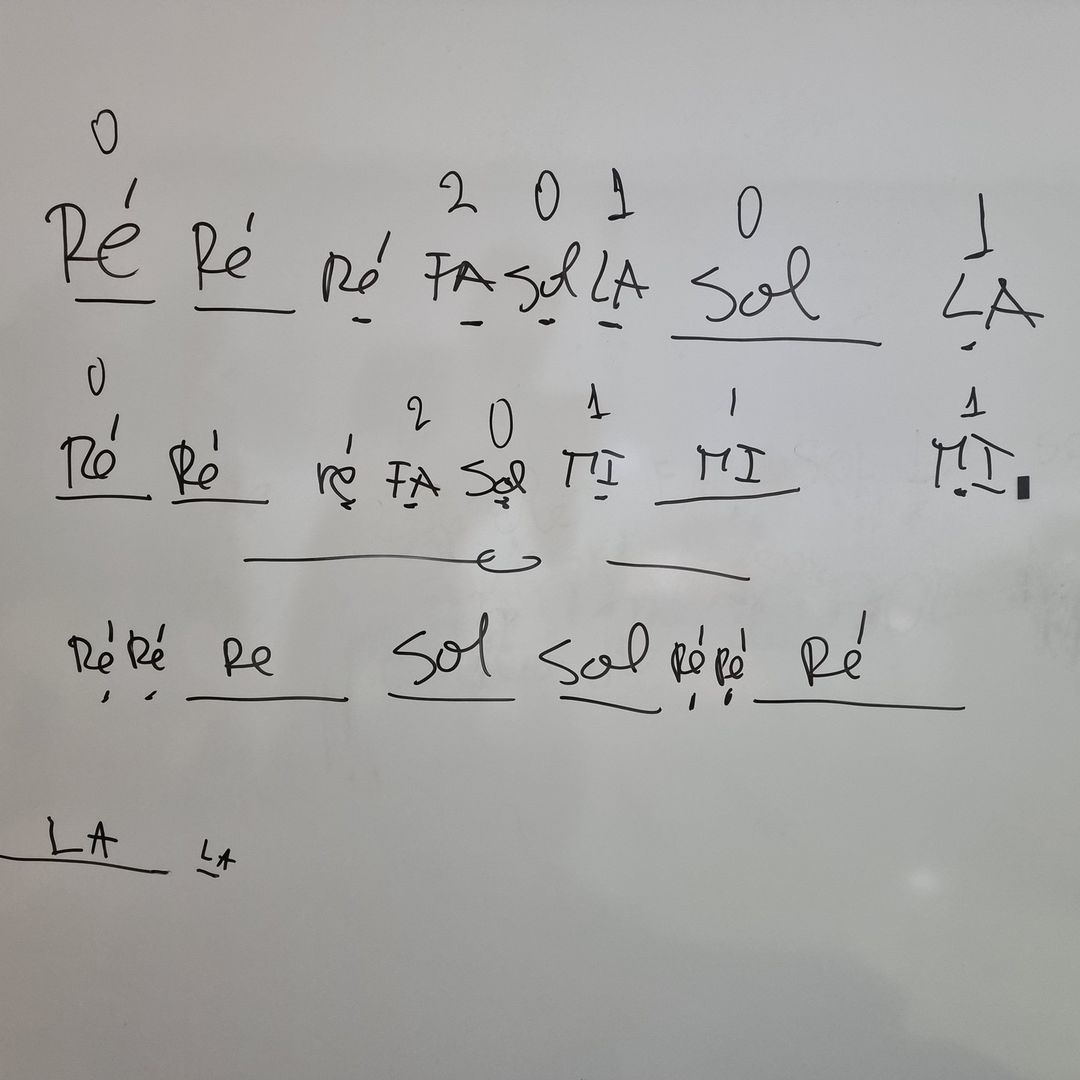 0 2 0 1 0 1
Ré Ré Ré FA Sol LA Sol LA
0 2 0 1 1 1
Ré Ré ré FA Sol MI MI MI
Ré Ré Re Sol Sol Ré Ré Ré
LA LA